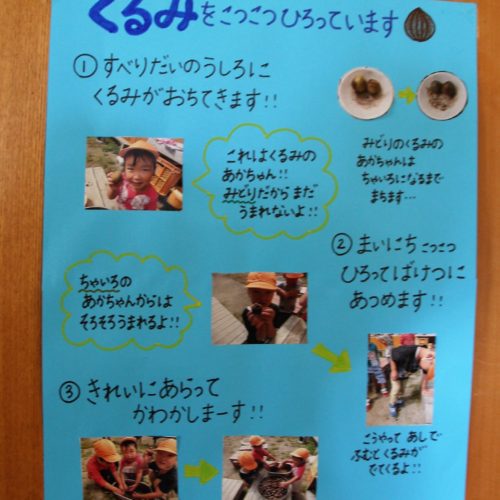 くるみをこつこつひろっています
① すべりだいのうしろに
くるみがおちてきます!!
これはくるみの
あかちゃん!!
みどりだからまだ
うまれないよ!!
みどりのくるみの
あかちゃんは
ちゃいろになるまで
まちます…
② まいにちこつこつ
ひろってばけつに
あつめます!!
ちゃいろの
あかちゃんからは
そろそろうまれるよ!!
こうやってあしで
ふむとくるみが
でてくるよ!
③ きれいにあらって
かわかしまーす!!